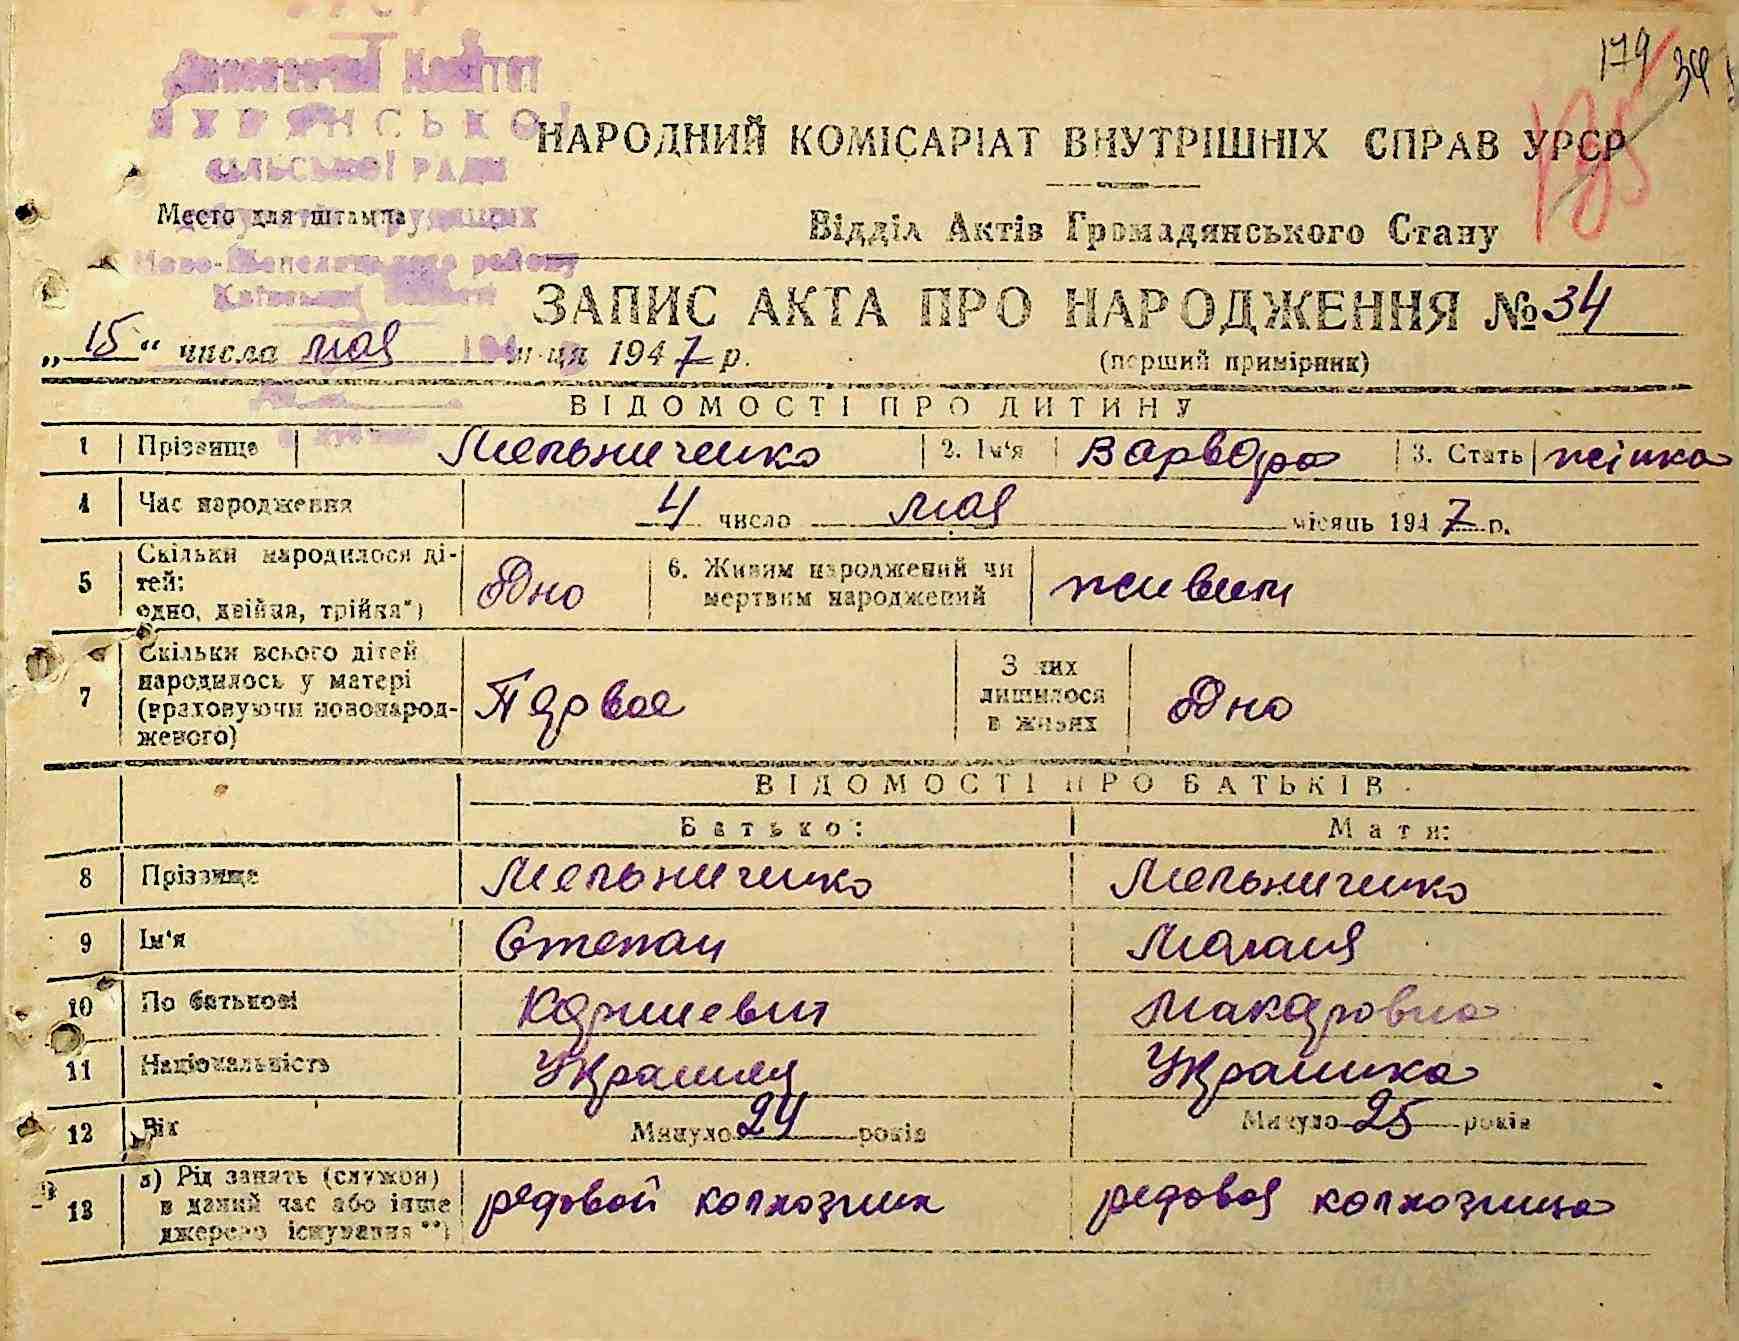 179
34
195
УРСР
Виконавчий Комітет
сільської РАДИ
депутатів трудящих
району
Київської області
НАРОДНИЙ КОМІСАРІАТ ВНУТРІШНІХ СПРАВ УРСР
Место для штампа
Відділ Актів Громадянського Стану
ЗАПИС АКТА ПРО НАРОДЖЕННЯ № 34
„15“ числа мая м-ця 1947 р.
(перший примірник)
ВІДОМОСТІ ПРО ДИТИНУ
1 Прізвище Мельниченко 2. Ім'я Варвара 3. Стать жінка
4 Час народження 4 число мая місяць 1947 р.
5 Скільки народилося ді-
тей:
одно, двійня, трійня*)
Одно
6. Живим народжений чи
мертвим народжений
живым
7 Скільки всього дітей
народилось у матері
(враховуючи новонарод-
женого)
Первое
З них
лишилося
в живих
Одно
ВІДОМОСТІ ПРО БАТЬКІВ
Батько: Мати:
8 Прізвище Мельниченко Мельниченко
9 Ім'я Степан Малания
10 По батькові Макаровна
11 Національність Украинец Украинка
12 Вік Минуло 24 років Минуло 25 років
13 а) Рід занять (служби)
в даний час або інше
джерело існування**)
редовой колхозник редовая колхозница